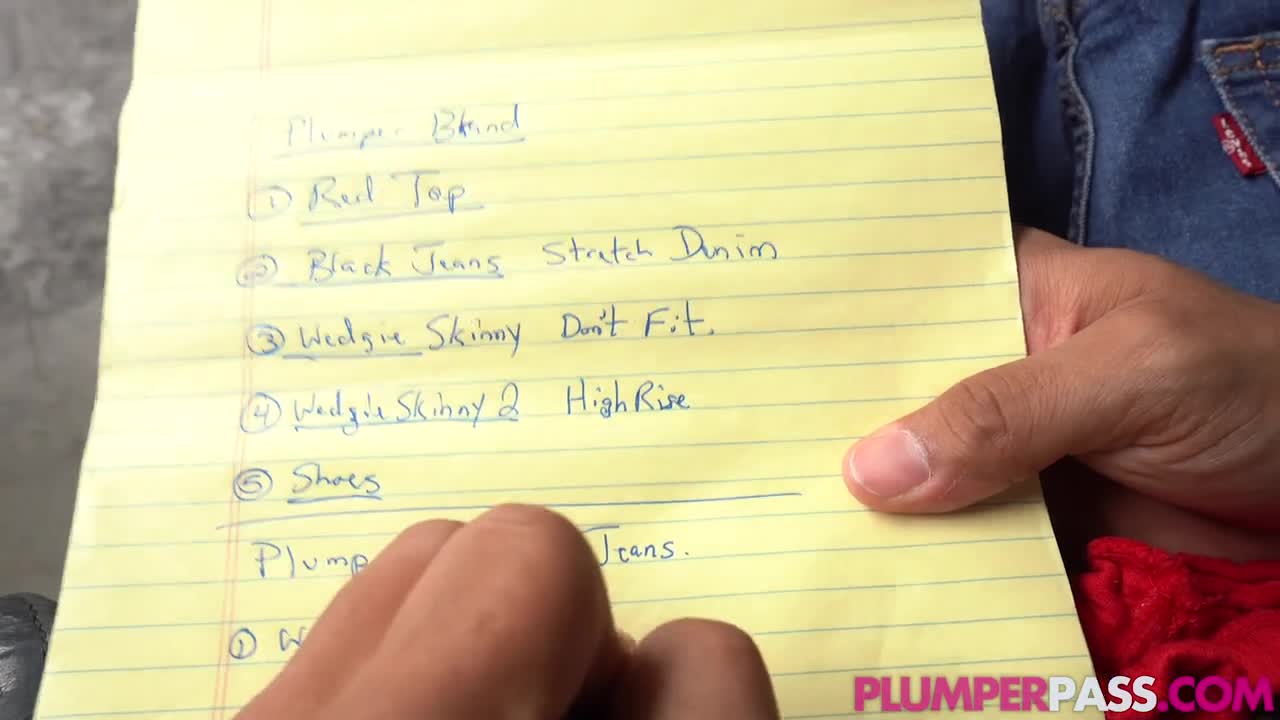 Plumper Blind
① Red Top
② Black Jeans Stretch Denim
③ Wedgie Skinny Don't Fit.
④ Wedgie Skinny 2 High Rise
⑤ Shoes
Plump Jeans.
① W
LEVI'S
PLUMPERPASS.COM